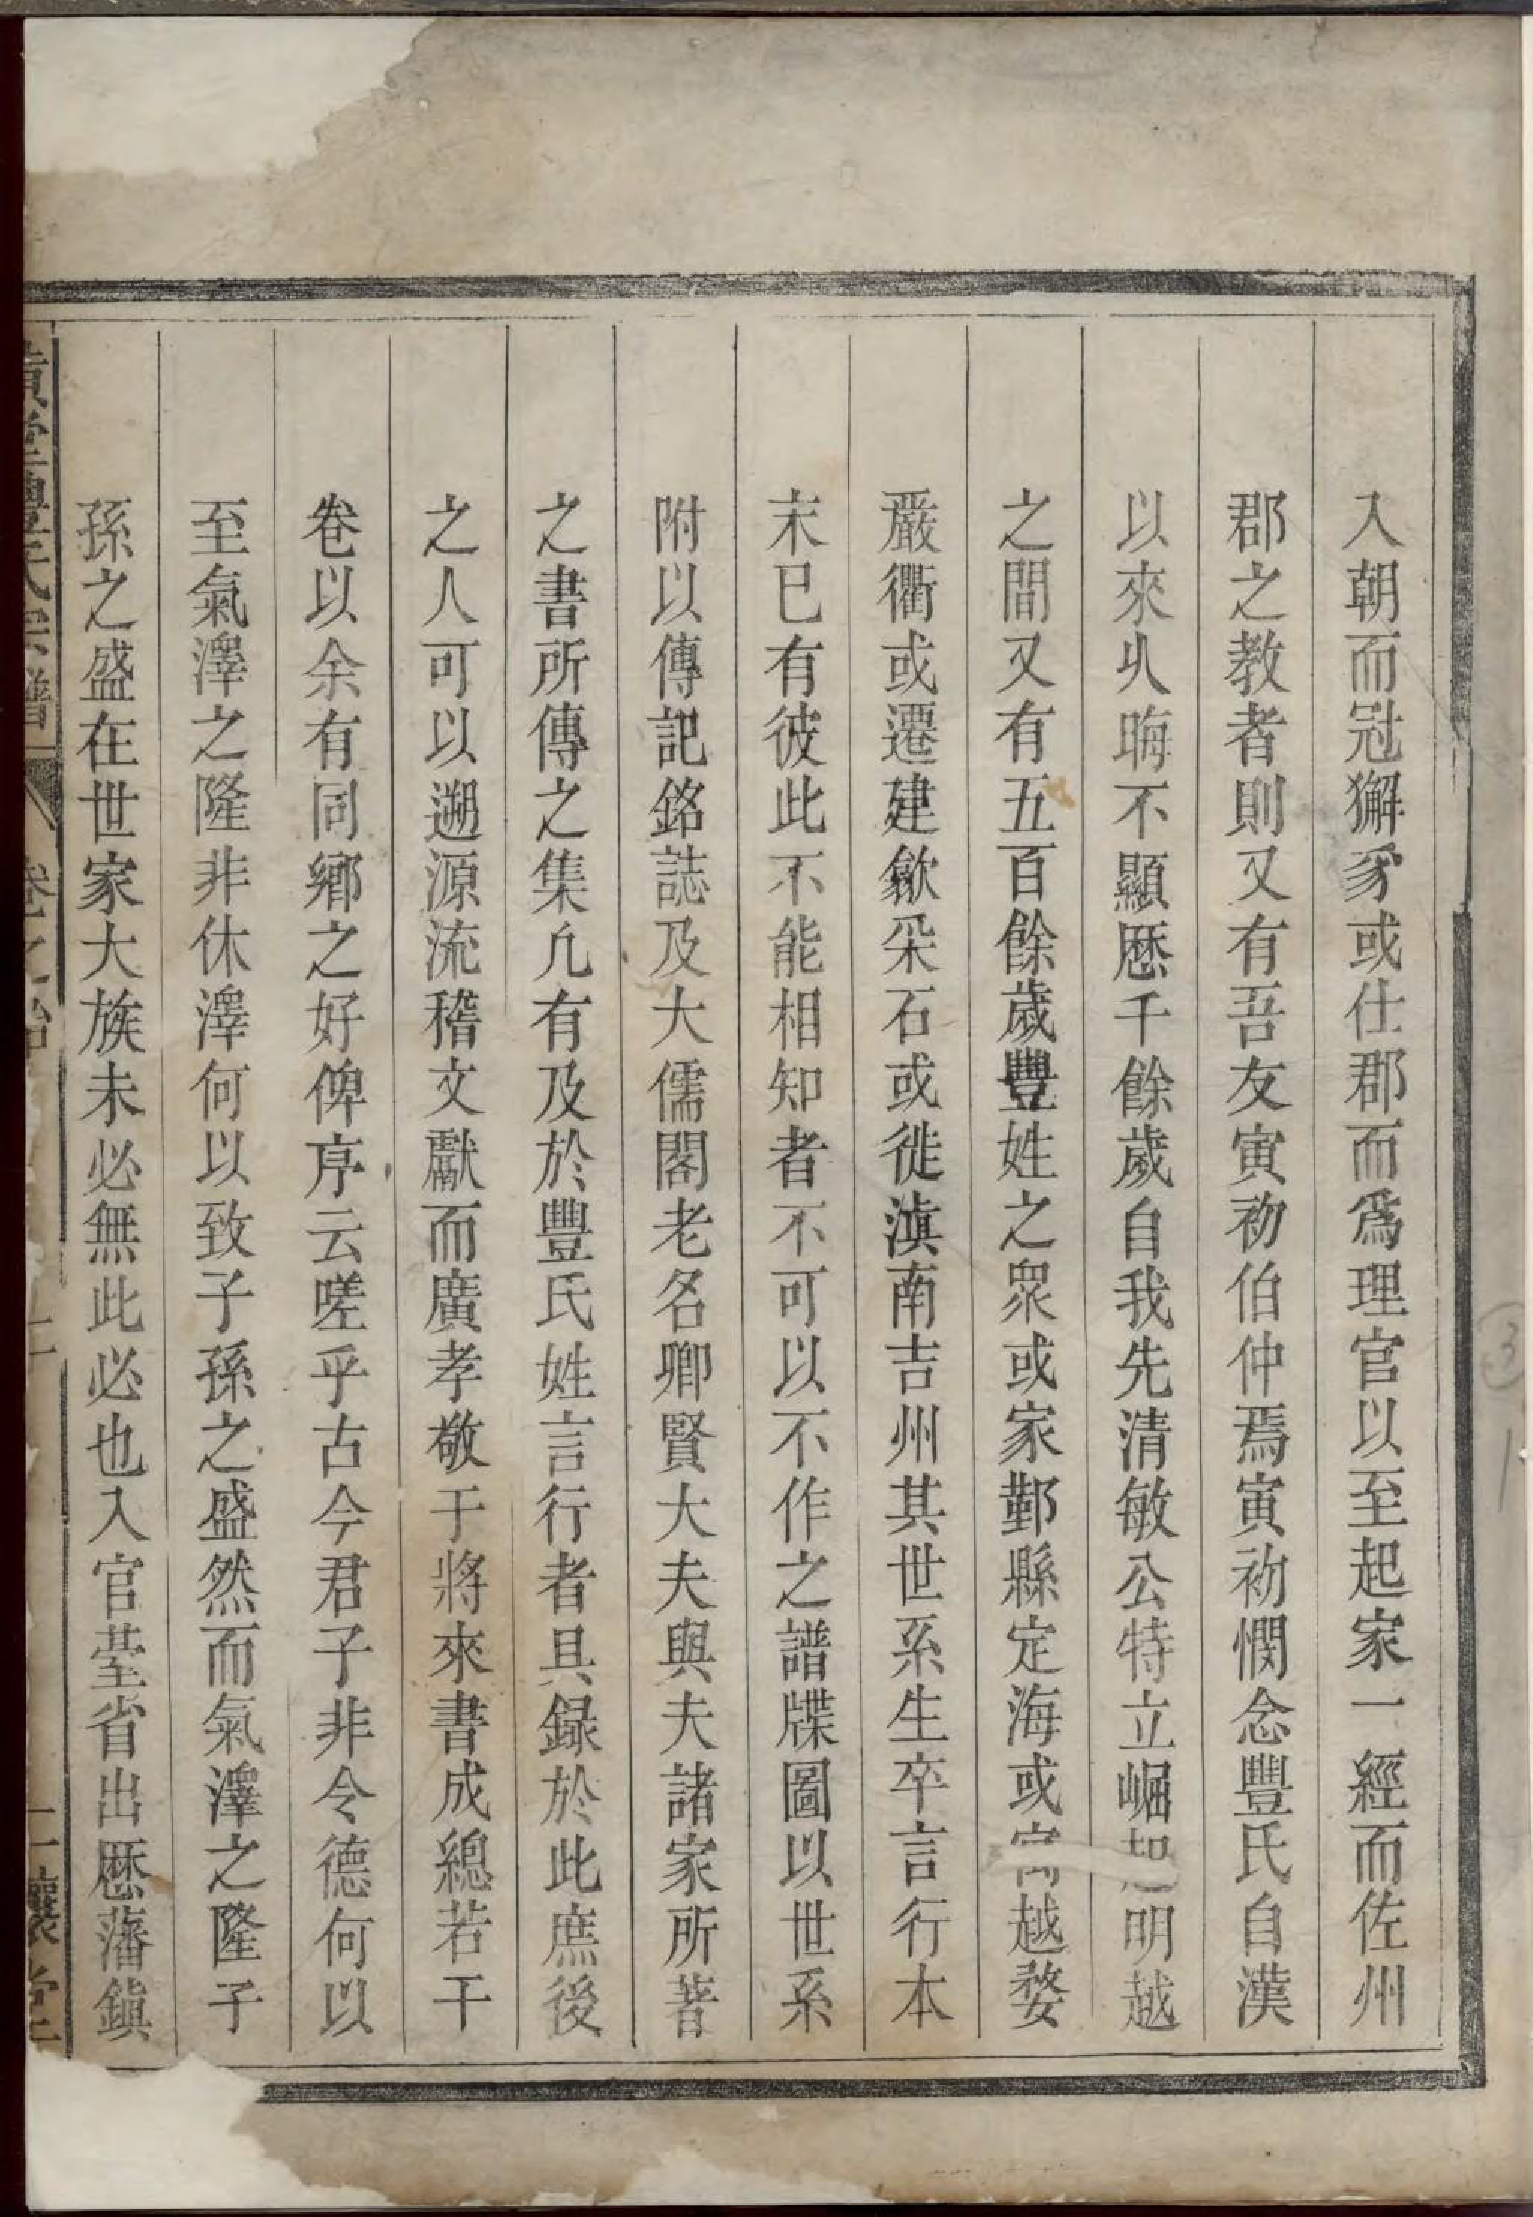 入朝而冠獬豸或仕郡而爲理官以至起家一經而佐州
郡之教者則又有吾友寅初伯仲焉寅初憫念豐氏自漢
以來乆晦不顯歴千餘歲自我先清敏公特立崛起明越
之間又有五百餘歲豐姓之眾或家鄞縣定海或寓越婺
嚴衢或遷建歙采石或徙滇南吉州其世系生卒言行本
末已有彼此不能相知者不可以不作之譜牒圖以世系
附以傳記銘誌及大儒閣老名卿賢大夫與夫諸家所著
之書所傳之集凢有及於豐氏姓言行者具録於此庶後
之人可以遡源流稽文獻而廣孝敬于將來書成總若干
卷以余有同鄉之好俾序云嗟乎古今君子非令德何以
至氣澤之隆非休澤何以致子孫之盛然而氣澤之隆子
孫之盛在世家大族未必無此必也入官臺省出歴藩鎮
黃堂豐氏宗譜 卷之 一 釀堂